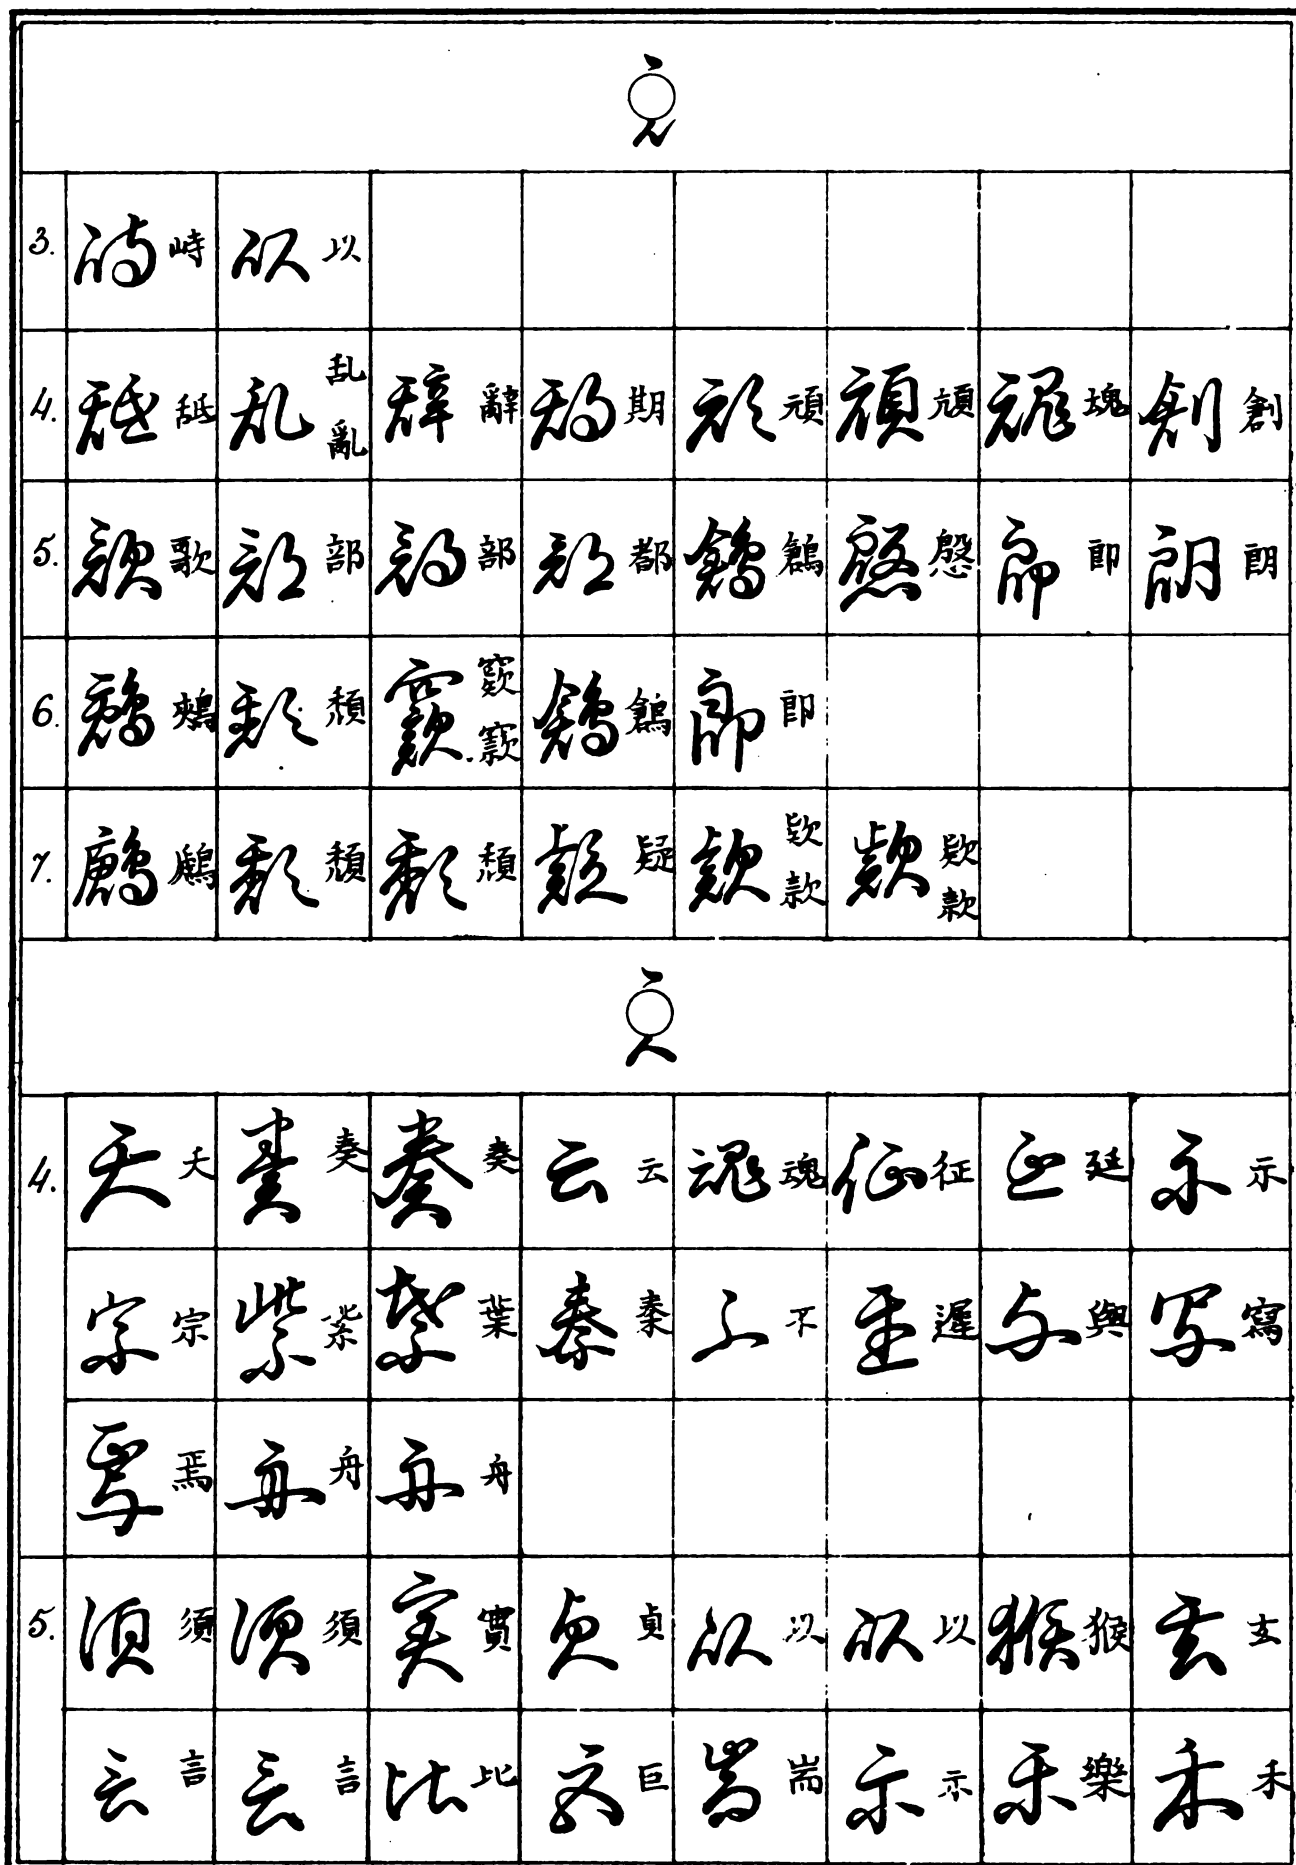 3. 峙 以
4. 舐 乱 亂 辭 期 頑 頑 魂 創
5. 歌 部 部 都 鶬 慇 即 朗
6. 鴉 頹 窾 窾 鶬 即
7. 鷉 頹 頹 疑 欵 款 欵 款
4. 夭 奏 奏 云 魂 征 延 示
宗 紫 葉 秦 不 遲 與 寫
焉 舟 舟
5. 須 須 實 貞 以 以 猴 玄
言 言 比 巨 耑 示 樂 禾